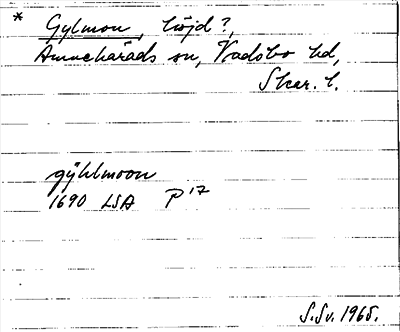 * Gylmon, höjd?,
Amnehärads sn, Vadsbo hd,
Skar. l.
gÿhlmoon
1690 LSA P 17
S.Sv. 1965.